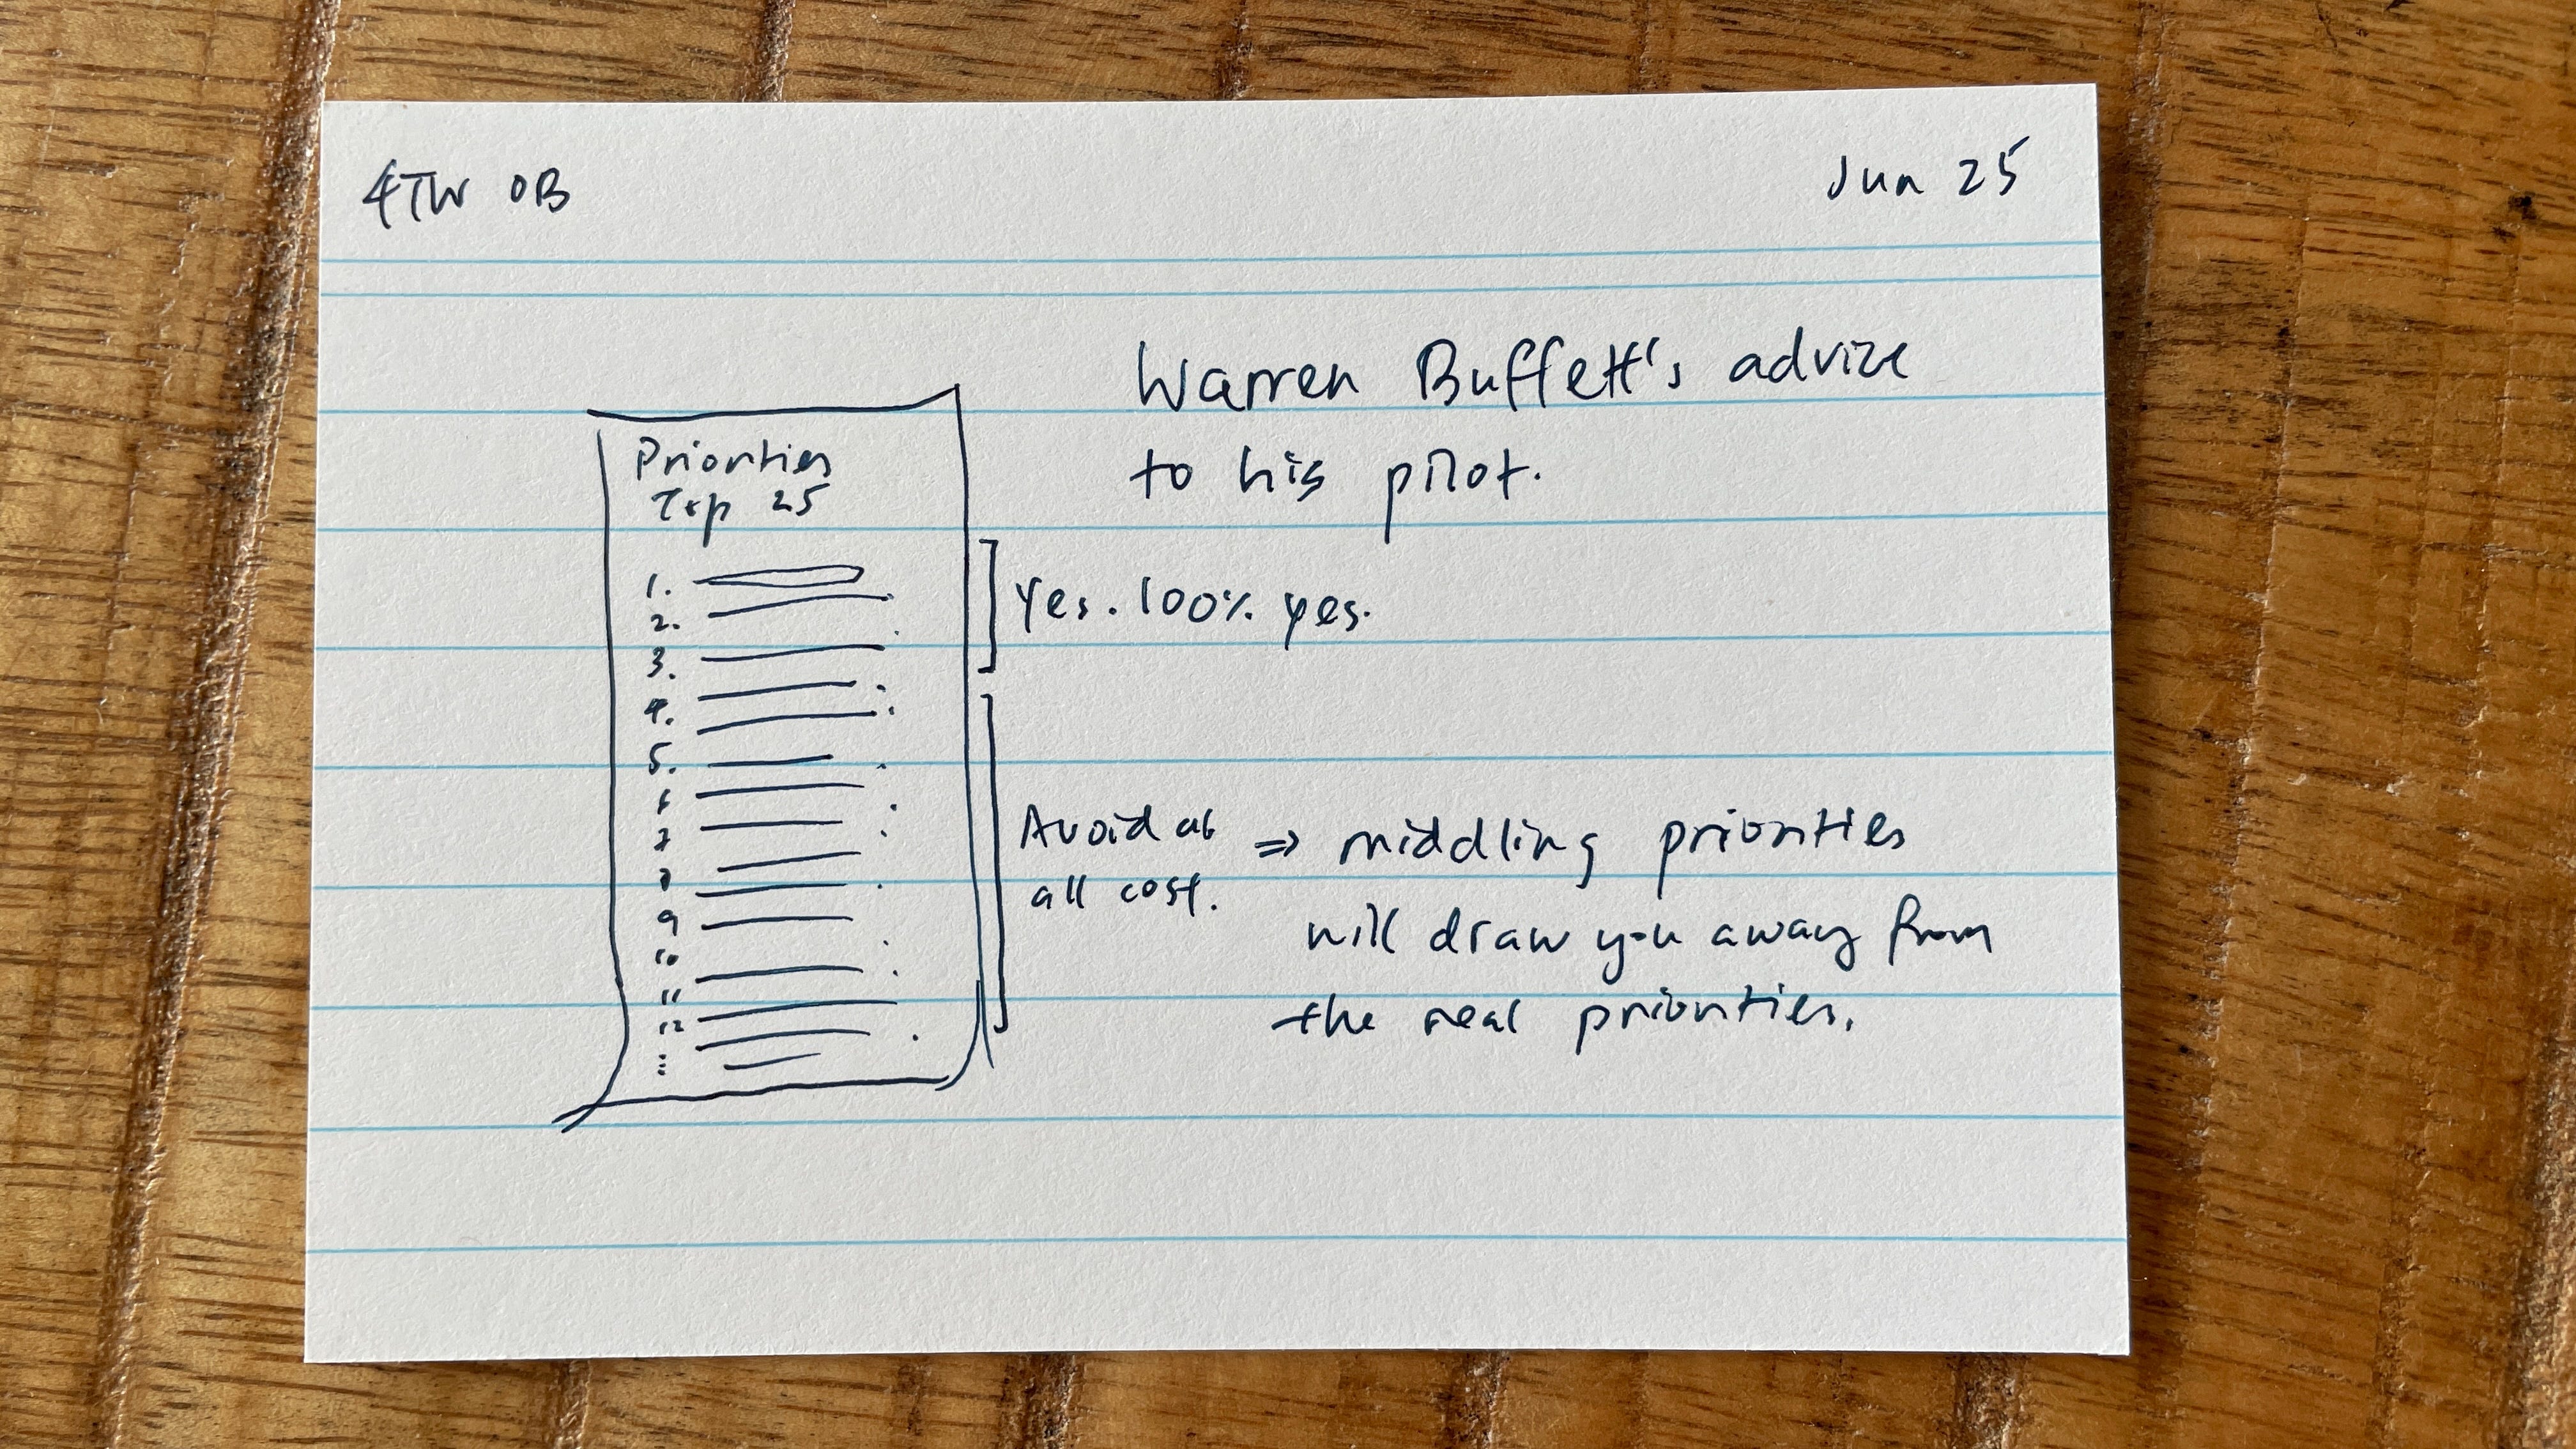 4TW OB
Jun 25
Warren Buffett's advice
to his pilot.
Priorities
Top 25
1.
2.
3.
4.
5.
6
7
8
9
10
11
12
...
Yes. 100% yes.
Avoid at
all cost.
⇒ middling priorities
will draw you away from
the real priorities.